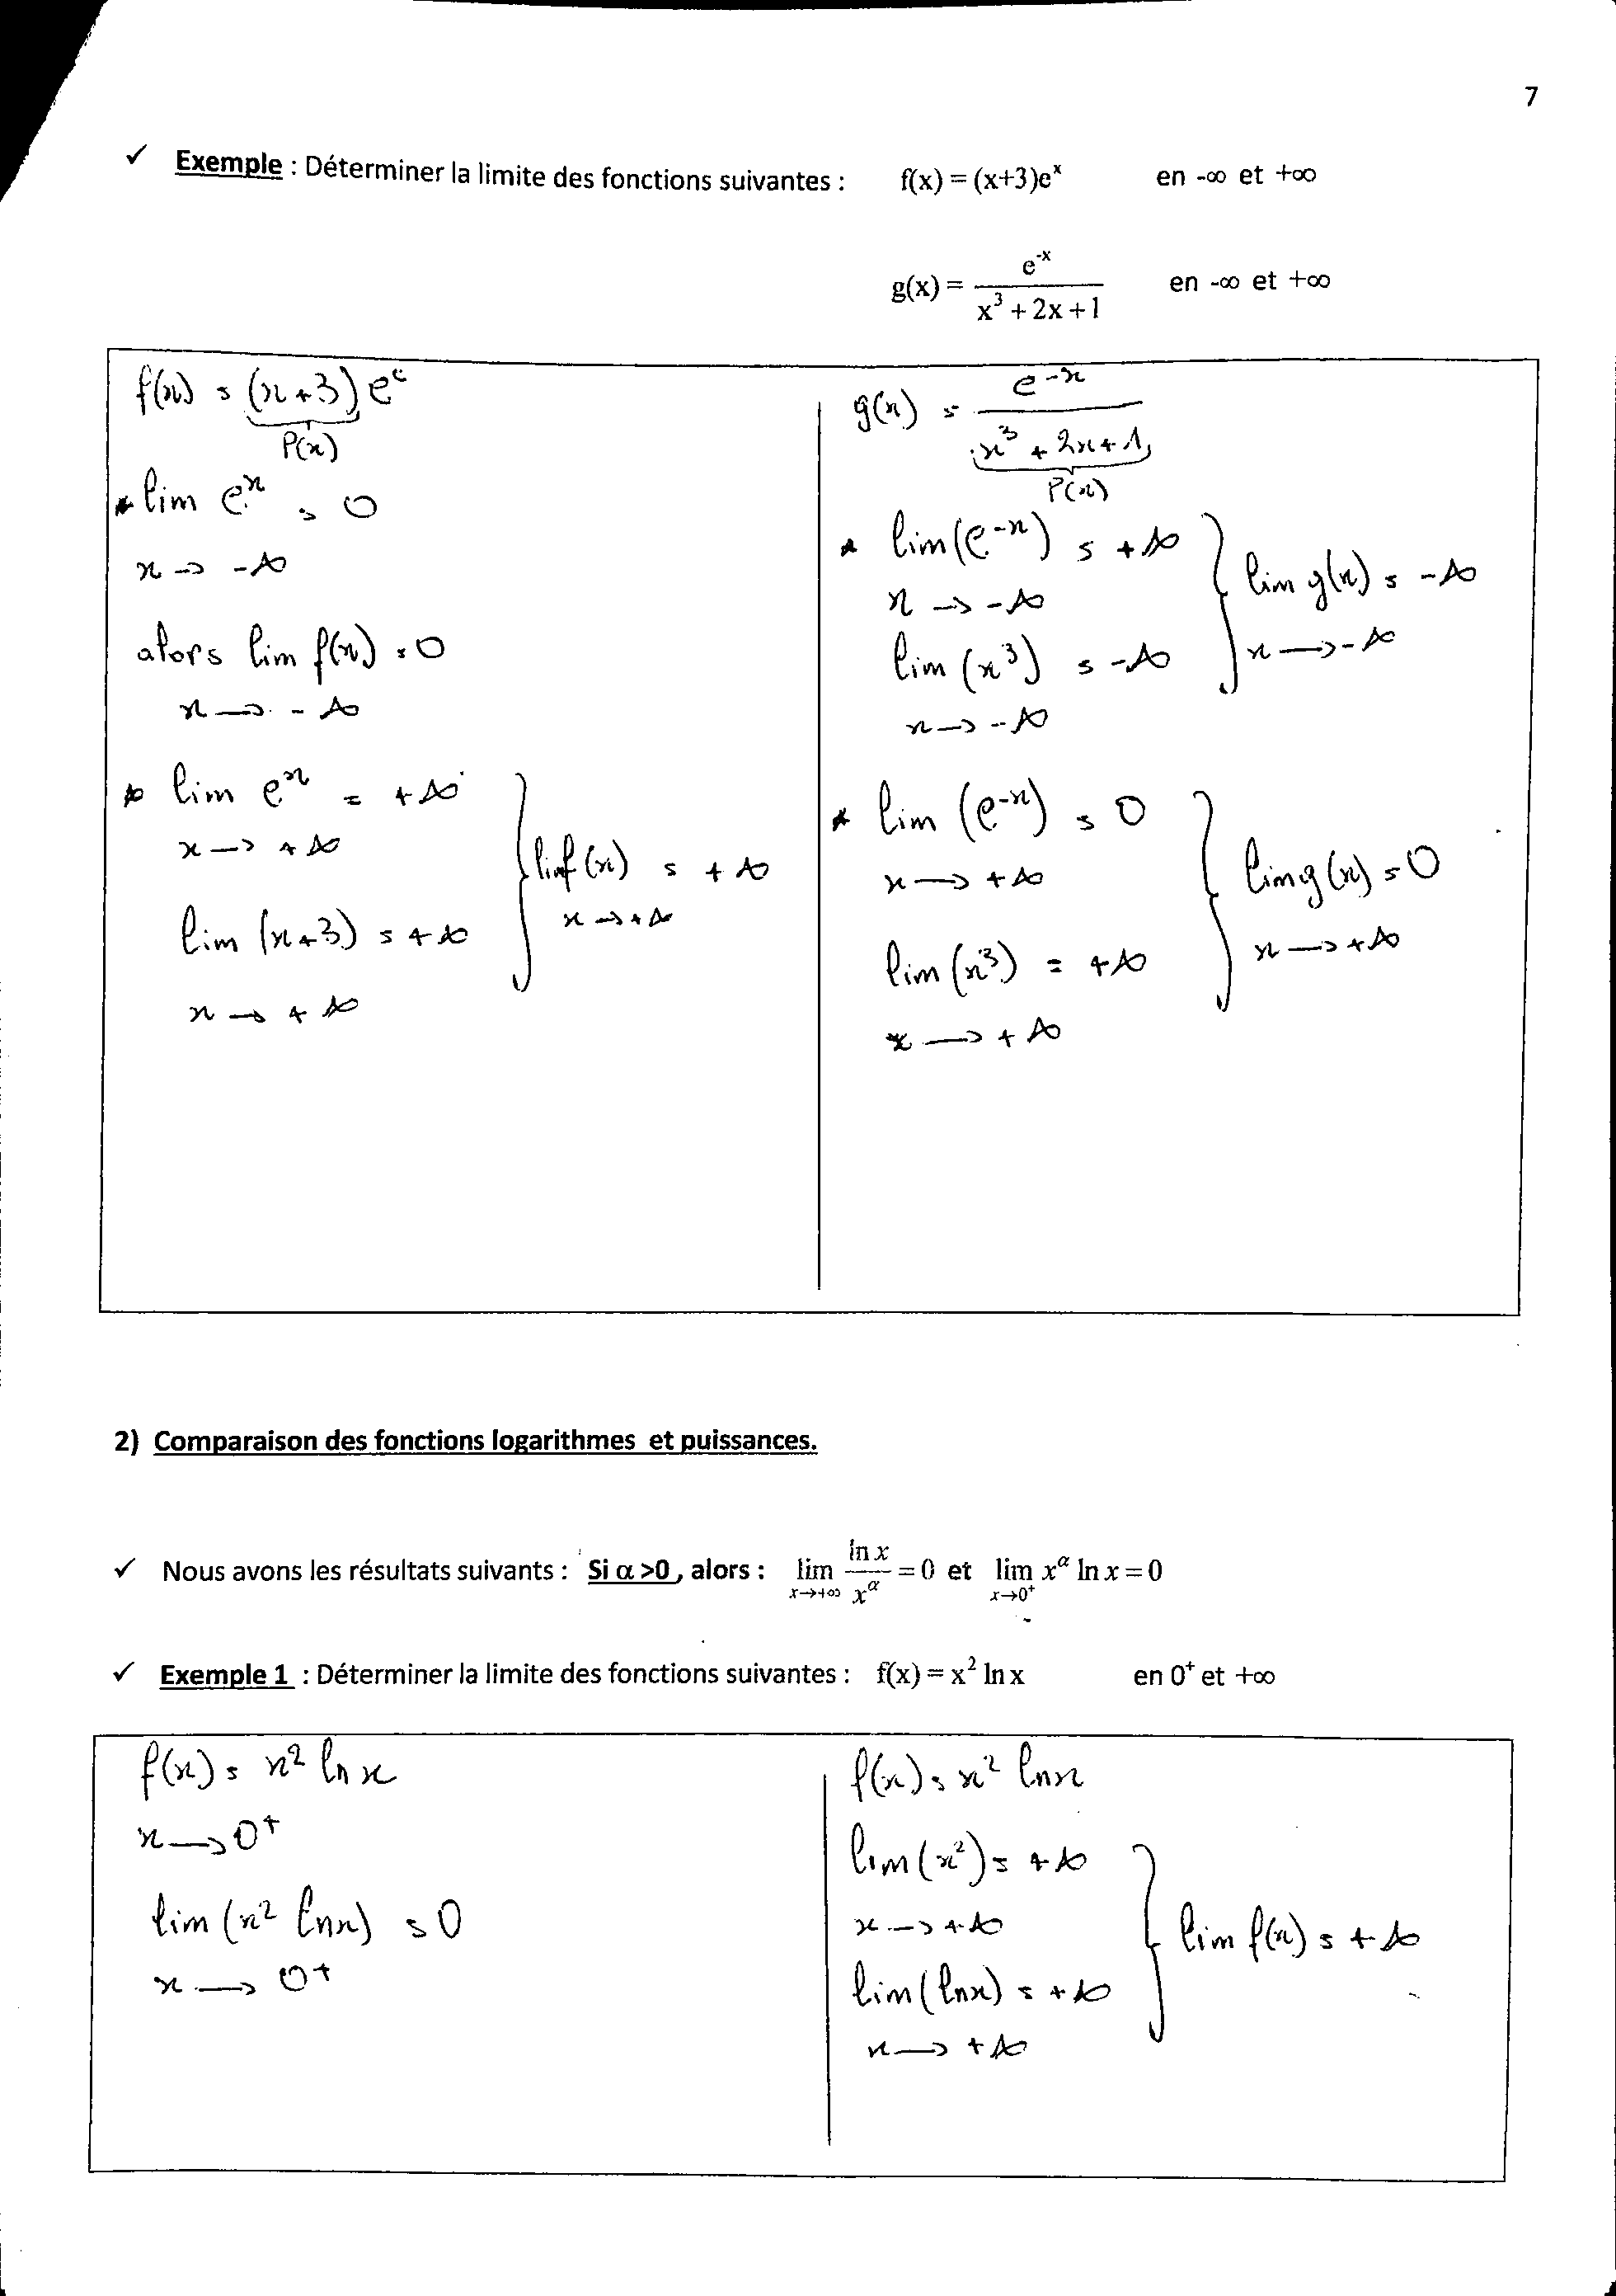 7
✓ Exemple : Déterminer la limite des fonctions suivantes : f(x) = (x+3)eˣ en -∞ et +∞
g(x) = e⁻ˣ / (x³ + 2x + 1) en -∞ et +∞
f(x) = (x+3) eˣ
P(x)
* lim eˣ = 0
x → -∞
alors lim f(x) = 0
x → -∞
* lim eˣ = +∞
x → +∞
lim (x+3) = +∞
x → +∞
lim f(x) = +∞
x → +∞
g(x) = e⁻ˣ / (x³ + 2x + 1)
P(x)
* lim (e⁻ˣ) = +∞
x → -∞
lim (x³) = -∞
x → -∞
lim g(x) = -∞
x → -∞
* lim (e⁻ˣ) = 0
x → +∞
lim (x³) = +∞
x → +∞
lim g(x) = 0
x → +∞
2) Comparaison des fonctions logarithmes et puissances.
✓ Nous avons les résultats suivants : Si α >0 , alors : lim x→+∞ ln x / x^α = 0 et lim x→0⁺ x^α ln x = 0
✓ Exemple 1 : Déterminer la limite des fonctions suivantes : f(x) = x² ln x en 0⁺ et +∞
f(x) = x² ln x
x → 0⁺
lim (x² ln x) = 0
x → 0⁺
f(x) = x² ln x
lim (x²) = +∞
x → +∞
lim (ln x) = +∞
x → +∞
lim f(x) = +∞